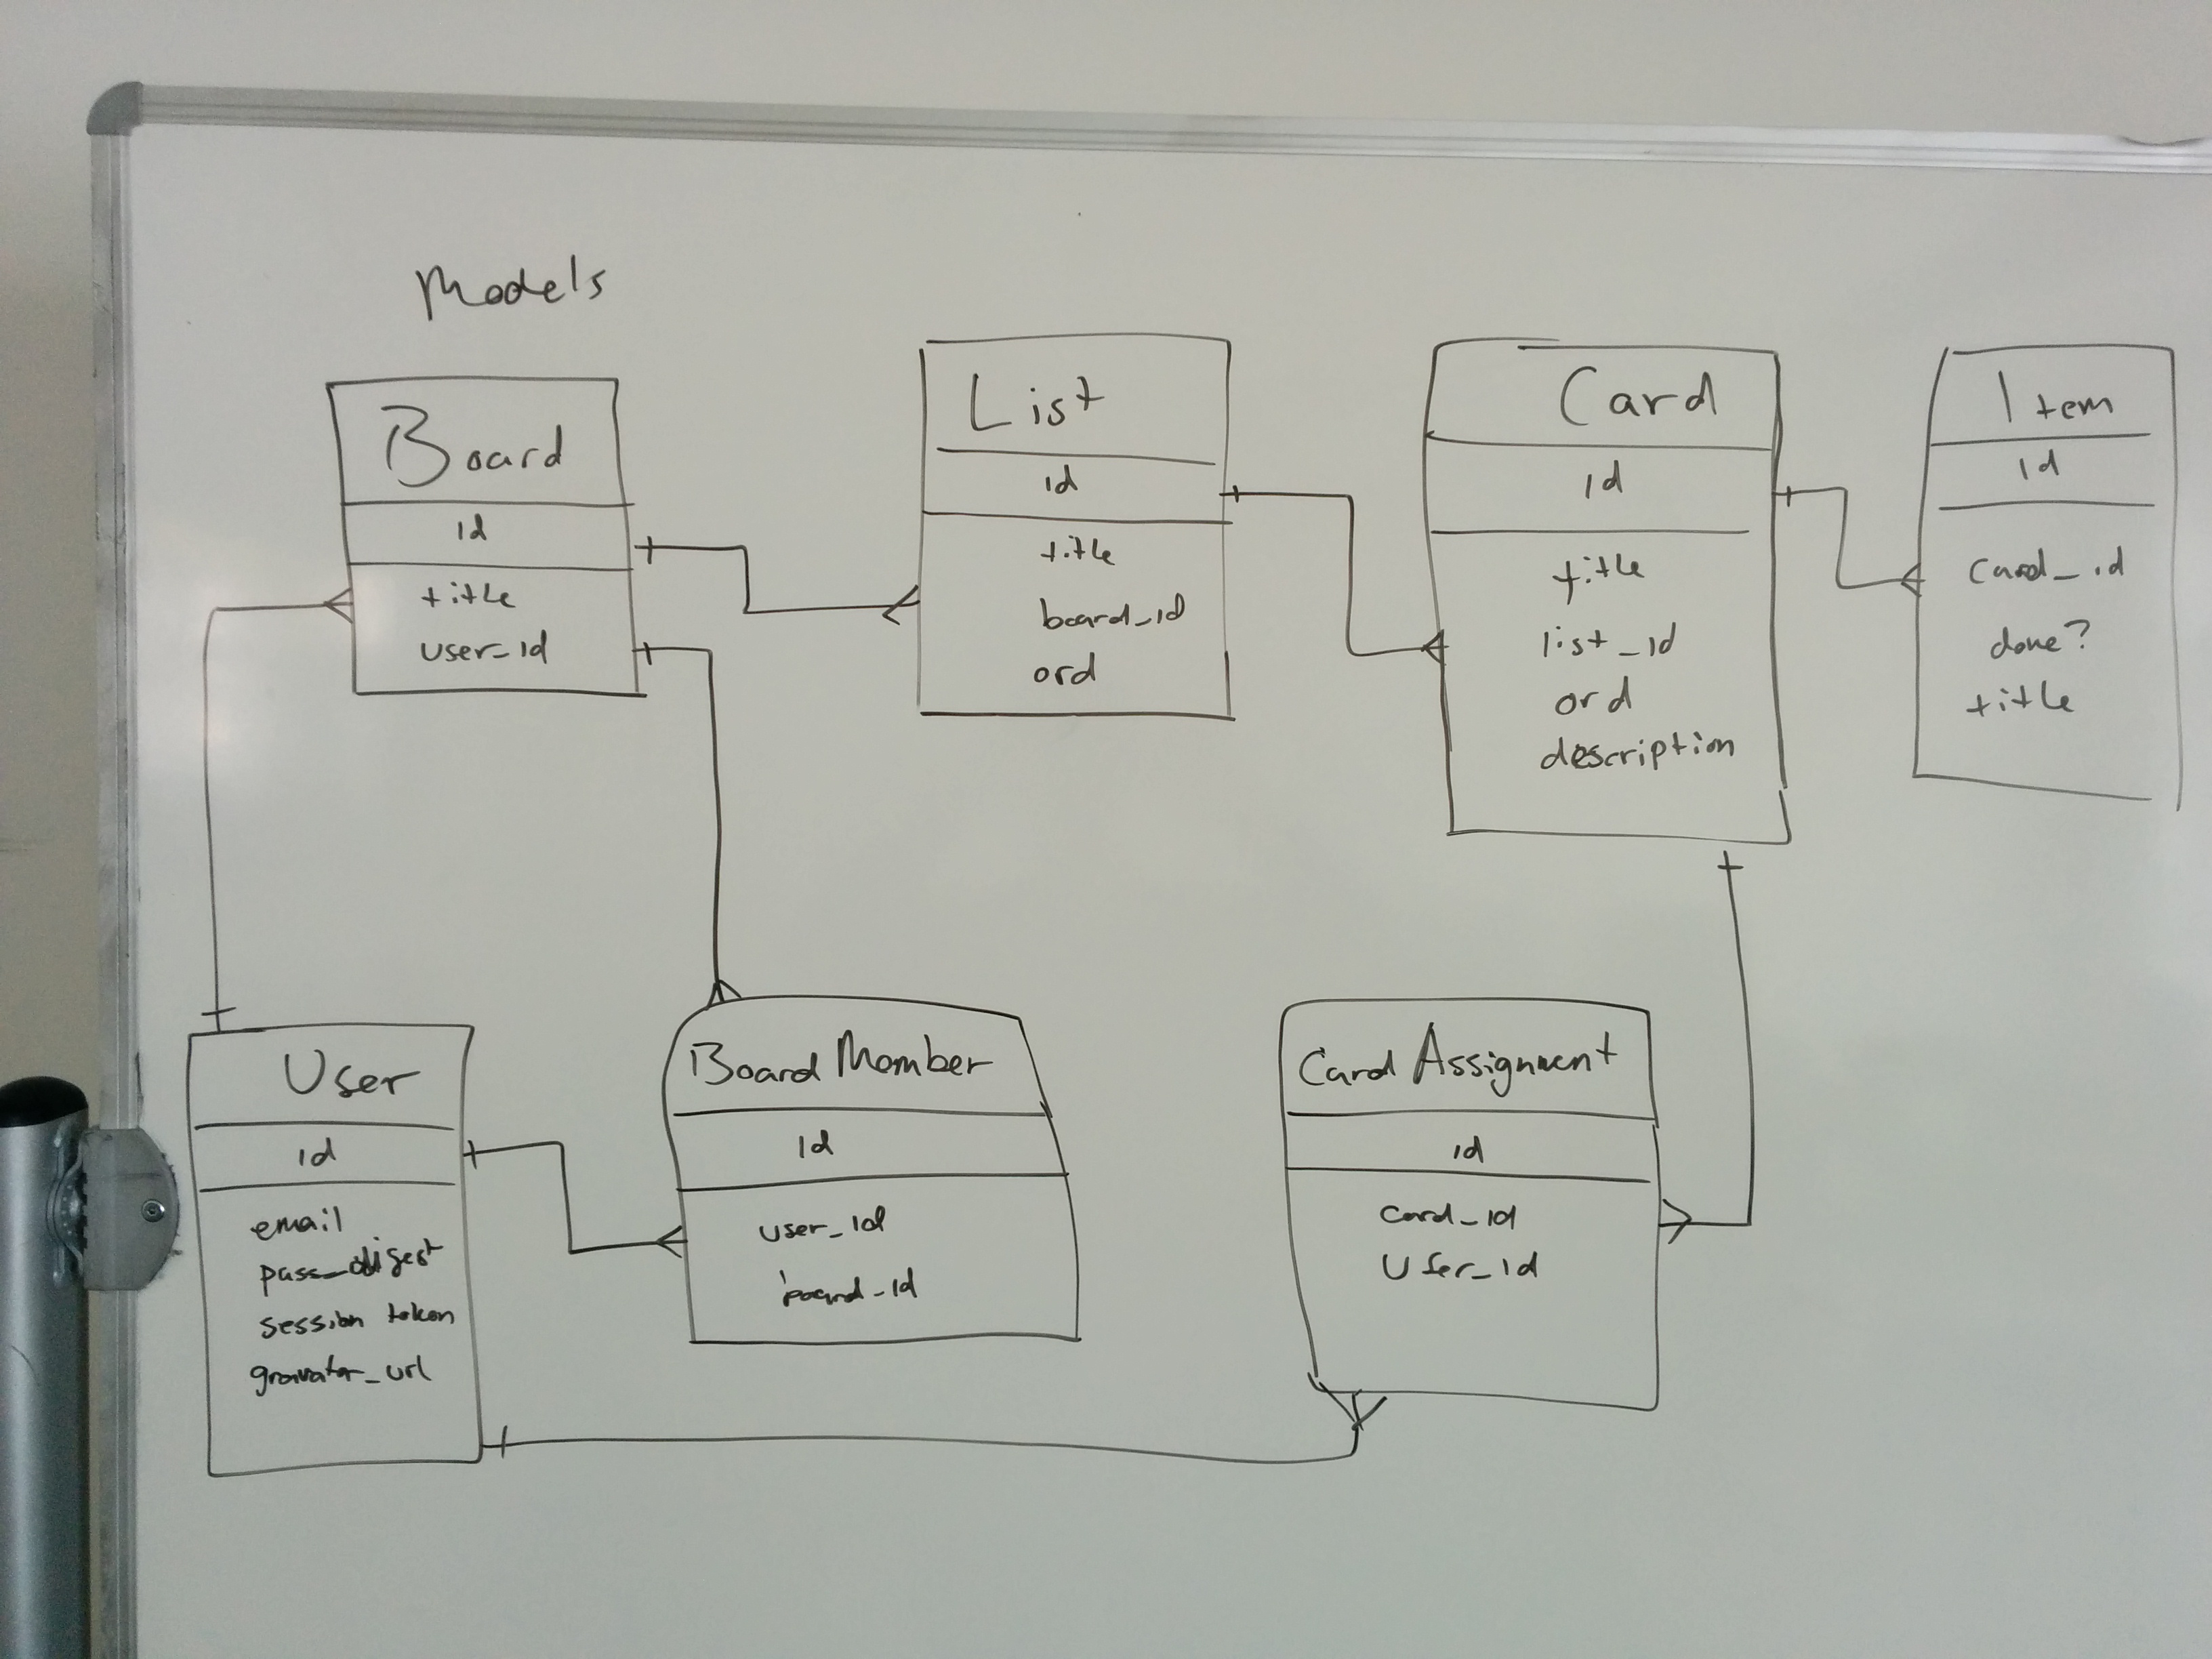 Models
Board
id
title
user_id
List
id
title
board_id
ord
Card
id
title
list_id
ord
description
Item
id
card_id
done?
title
User
id
email
pass_digest
session token
gravatar_url
Board Member
id
user_id
board_id
Card Assignment
id
card_id
User_id